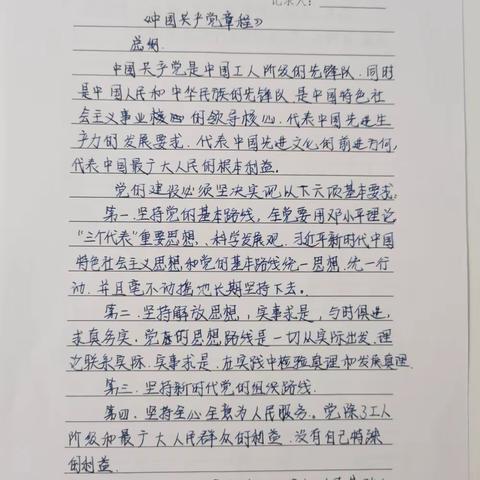 记录人：
《中国共产党章程》
总纲
中国共产党是中国工人阶级的先锋队，同时
是中国人民和中华民族的先锋队，是中国特色社
会主义事业核心的领导核心，代表中国先进生
产力的发展要求，代表中国先进文化的前进方向，
代表中国最广大人民的根本利益。
党的建设必须坚决实现以下六项基本要求：
第一，坚持党的基本路线，全党要用邓小平理论
"三个代表"重要思想、科学发展观、习近平新时代中国
特色社会主义思想和党的基本路线统一思想，统一行
动，并且毫不动摇地长期坚持下去。
第二，坚持解放思想，实事求是，与时俱进，
求真务实。党的思想路线是一切从实际出发，理
论联系实际，实事求是，在实践中检验真理和发展真理
第三，坚持新时代党的组织路线
第四，坚持全心全意为人民服务。党除了工人
阶级和最广大人民群众的利益，没有自己特殊
的利益